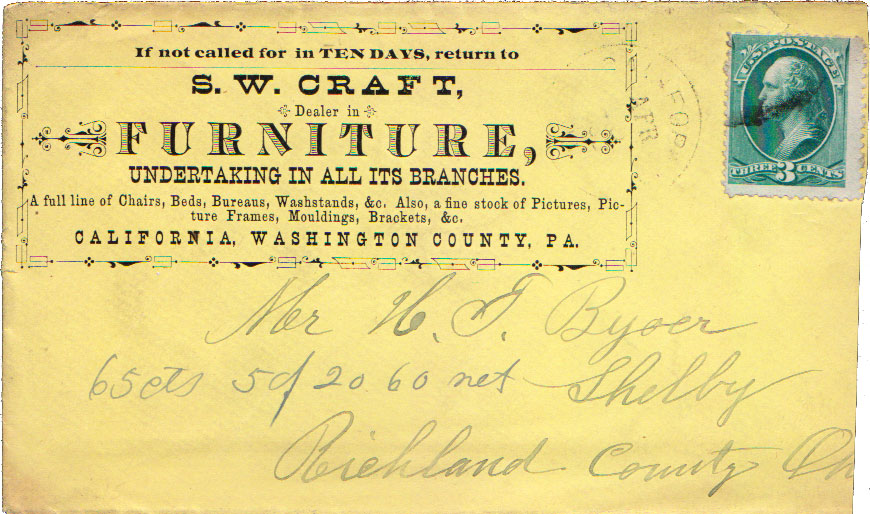 If not called for in TEN DAYS, return to
S. W. CRAFT,
Dealer in
FURNITURE,
UNDERTAKING IN ALL ITS BRANCHES.
A full line of Chairs, Beds, Bureaus, Washstands, &c. Also, a fine stock of Pictures, Pic-
ture Frames, Mouldings, Brackets, &c.
CALIFORNIA, WASHINGTON COUNTY, PA.
U.S. POSTAGE
THREE 3 CENTS
APR
Mr H. T.
65cts 5 20 60 net Shelby
Richland County Oh